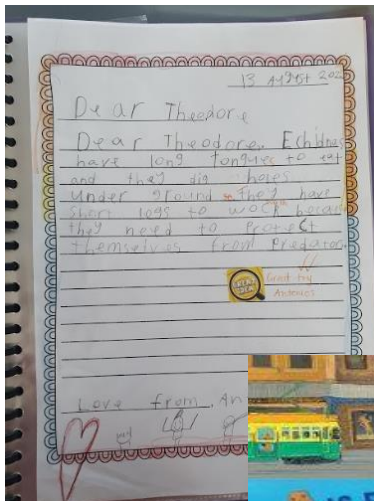 13 August 202
Dear Theodore
Dear Theodore. Echidnas
have long tongues to eat
and they dig holes
under ground so They have
short legs to wock because
they need to Protect
themselves from Predators
Great try
Antonios
Love from An